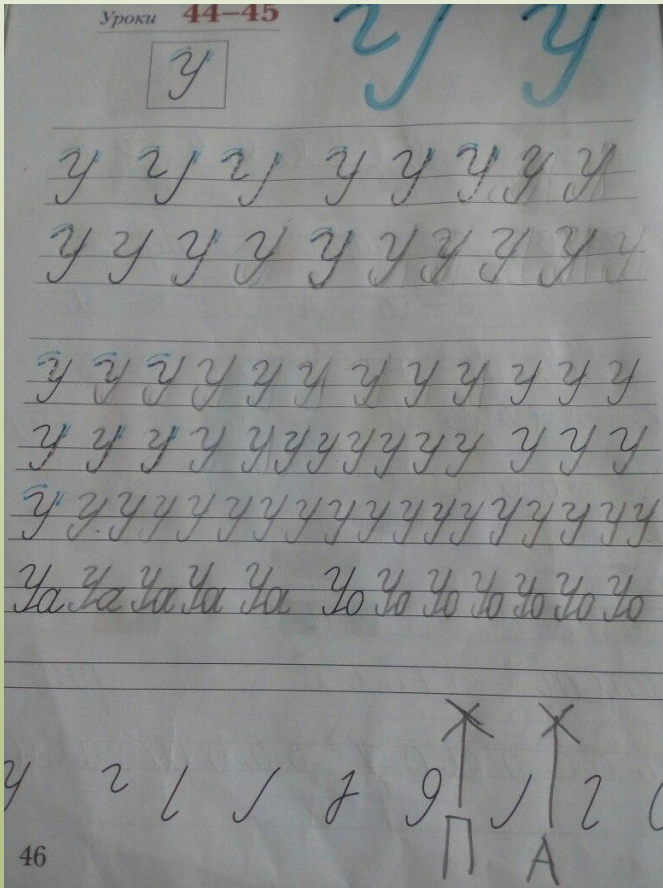 Уроки 44–45
У У
У
У У У У У У У У
У У У У У У У У У У
У У У У У У У У У У У У
У У У У У У У У У У У У У У
У У У У У У У У У У У У У У У У У У
Уа Уа Уа Уа Уа Уо Уо Уо Уо Уо Уо Уо
П А
46